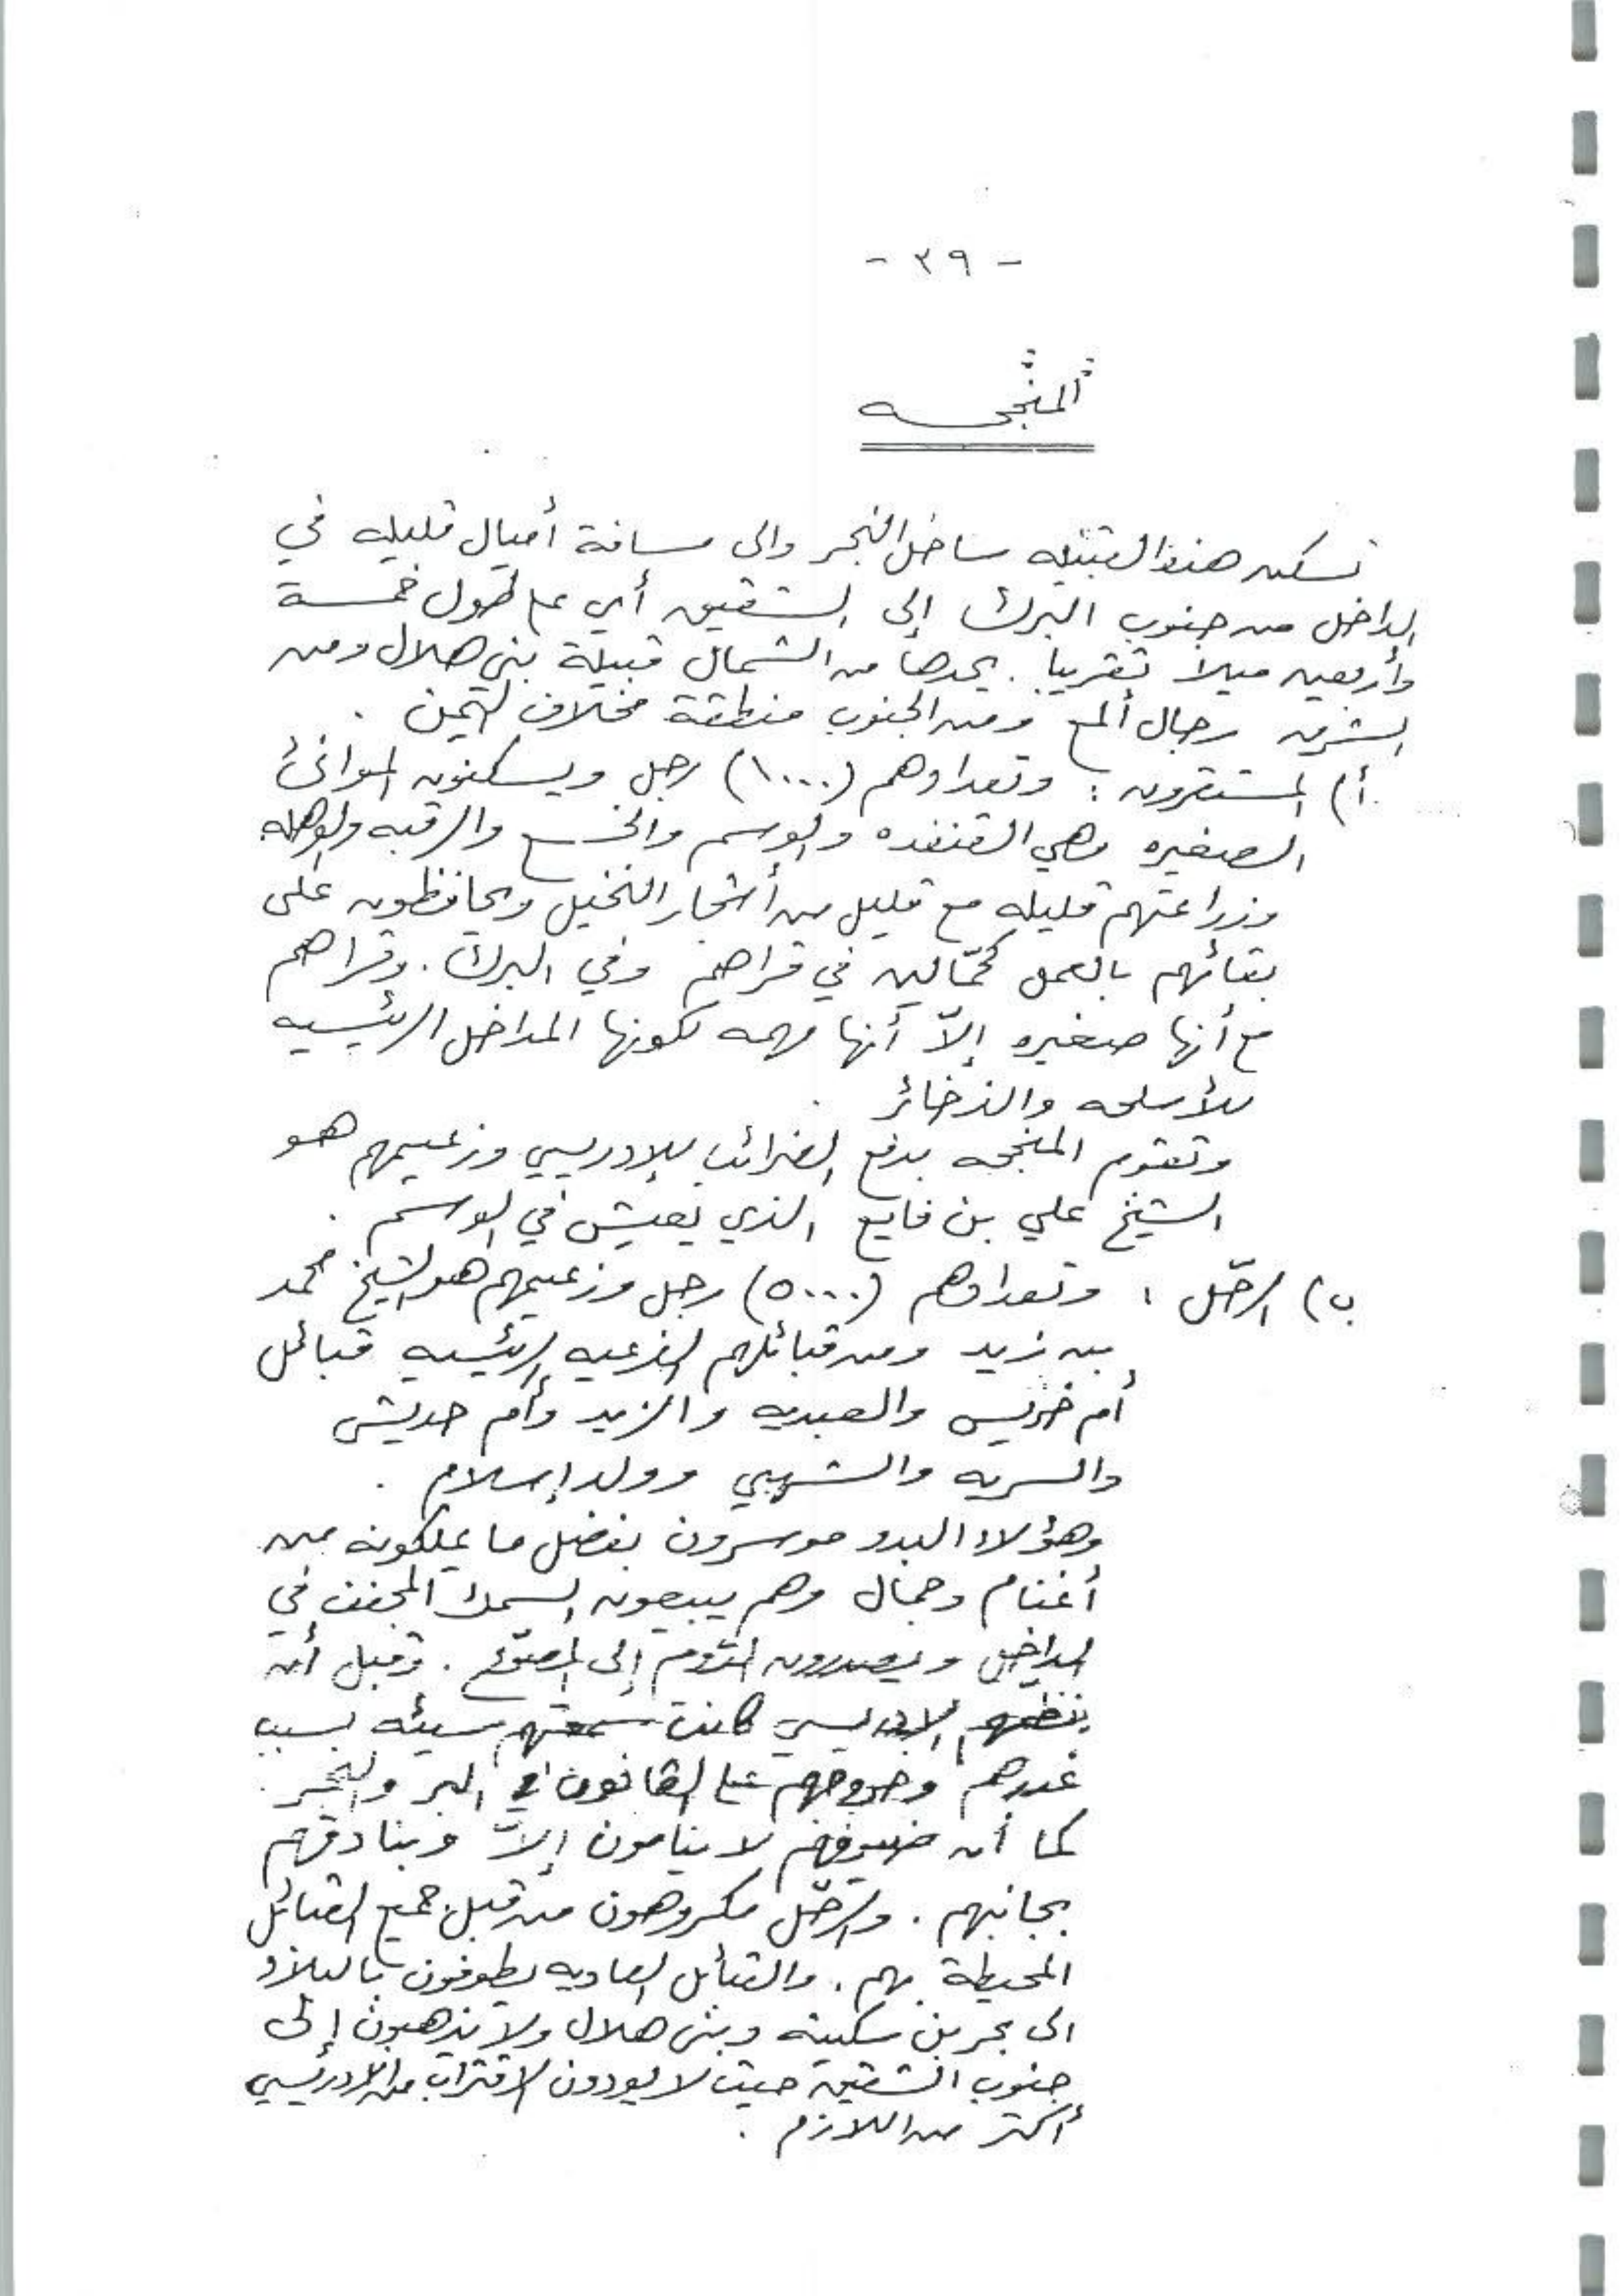 - ٣٩ -
المنجحه
تسكن هذه القبيله ساحل البحر والى مسافة أميال قليله في
الداخل من جنوب البرك إلى الشقيق أي على طول خمسة
وأربعين ميلاً تقريباً . يحدها من الشمال قبيلة بني هلال ومن
الشرق رجال ألمع ومن الجنوب منطقة مخلاف اليمن .
أ) المستقرون : وتعدادهم (١٠٠٠) رجل ويسكنون الموانئ
الصغيره وهي القنفده والوسم والخسع والرقبه والوهله
وزراعتهم قليله مع قليل من أشجار النخيل ويحافظون على
بقائهم بالعمل كحمّالين في قراهم وفي البرك . وقراهم
مع أنها صغيره إلاّ أنها مهمه لكونها المداخل الرئيسيه
للأسلحه والذخائر .
وتقوم المنجحه بدفع الضرائب للإدريسي وزعيمهم هو
الشيخ علي بن فايع الذي يعيش في الوسم .
ب) الرحّل : وتعدادهم (٥٠٠٠) رجل وزعيمهم هو الشيخ محمد
بن زيد ومن قبائلهم الفرعيه الرئيسيه قبائل
أم خريس والعبديه والزيد وأم حديش
والسريه والشهبي وولد إسلام .
وهؤلاء البدو موسرون بفضل ما يملكونه من
أغنام وجمال وهم يبيعون السمك المجفف في
الداخل ويصدرون الدوم إلى المصوّع . وقبل أن
ينظمهم الإدريسي كانت سمعتهم سيئه بسبب
غدرهم وخروجهم على القانون في البر والبحر .
كما أن ضيوفهم لا ينامون إلاّ وبنادقهم
بجانبهم . والرحّل مكروهون من قبل جميع القبائل
المحيطة بهم . والقبائل العاديه يطوفون بالبلاد
الى بحر بن سكينه وبني هلال ولا يذهبون إلى
جنوب الشقيق حيث لا يودون الاقتراب من الادريسي
أكثر من اللازم .